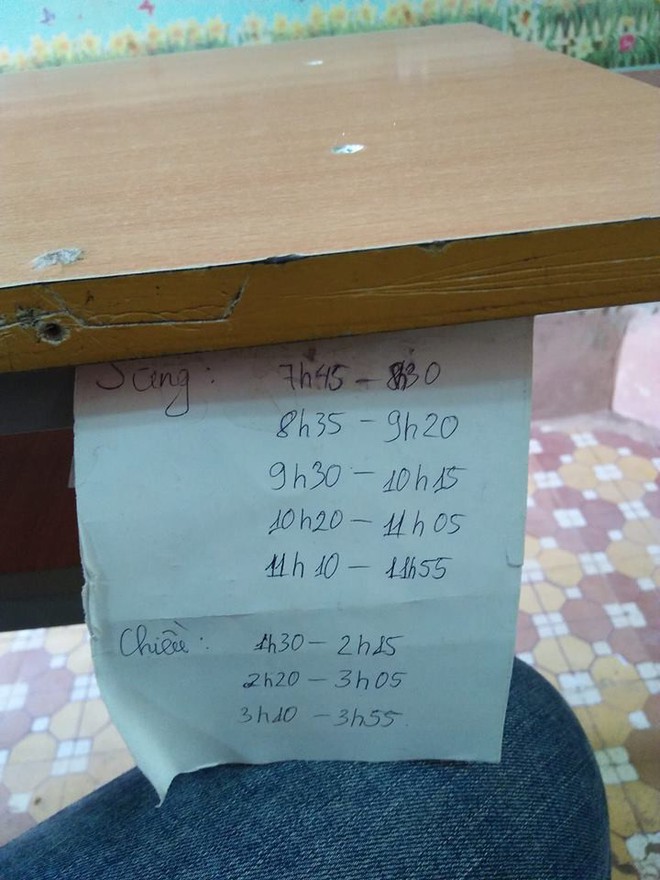 Sáng: 7h45 - 8h30
8h35 - 9h20
9h30 - 10h15
10h20 - 11h05
11h10 - 11h55
Chiều: 1h30 - 2h15
2h20 - 3h05
3h10 - 3h55